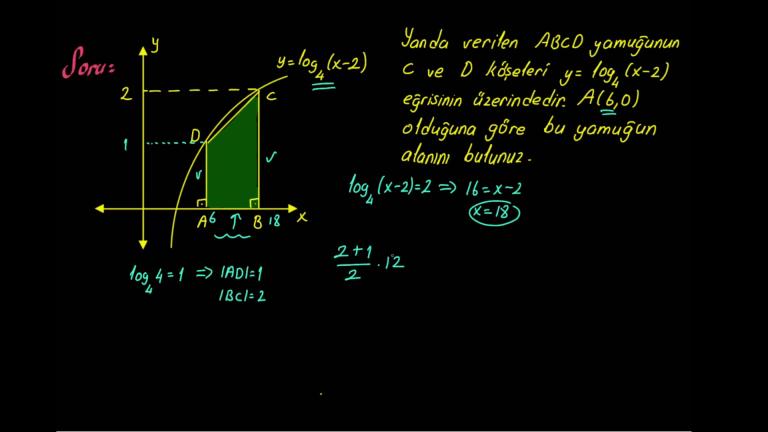 Soru:
y
y=log₄(x-2)
2
C
D
1
A 6 B 18 x
Yanda verilen ABCD yamuğunun
C ve D köşeleri y= log₄(x-2)
eğrisinin üzerindedir. A(6,0)
olduğuna göre bu yamuğun
alanını bulunuz.
log₄(x-2)=2 ⇒ 16=x-2
x=18
log₄4=1 ⇒ |AD|=1
|BC|=2
2+1
2 . 12